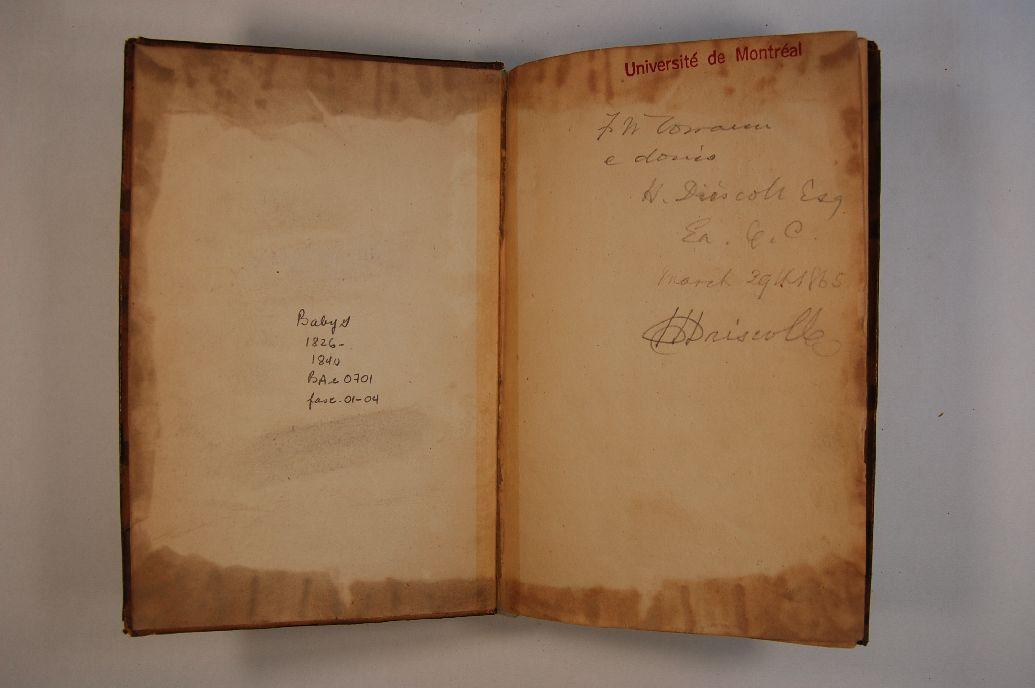 Baby S
1826-
1840
BAe 0701
fasc. 01-04
Université de Montréal
F W Torrance
e donis
H. Driscoll Esq
Q. C.
March 29th 1865
HDriscoll